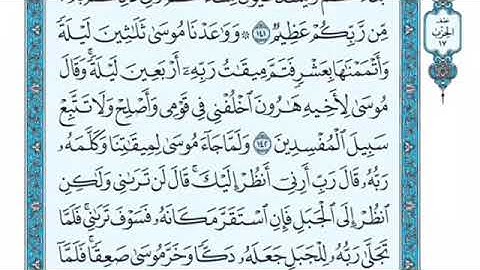 مِّن رَّبِّكُمْ عَظِيمٌ ١٤١ ۞ وَوَٰعَدْنَا مُوسَىٰ ثَلَٰثِينَ لَيْلَةً
وَأَتْمَمْنَٰهَا بِعَشْرٍ فَتَمَّ مِيقَٰتُ رَبِّهِۦٓ أَرْبَعِينَ لَيْلَةً ۚ وَقَالَ
مُوسَىٰ لِأَخِيهِ هَٰرُونَ ٱخْلُفْنِى فِى قَوْمِى وَأَصْلِحْ وَلَا تَتَّبِعْ
سَبِيلَ ٱلْمُفْسِدِينَ ١٤٢ وَلَمَّا جَآءَ مُوسَىٰ لِمِيقَٰتِنَا وَكَلَّمَهُۥ
رَبُّهُۥ قَالَ رَبِّ أَرِنِىٓ أَنظُرْ إِلَيْكَ ۚ قَالَ لَن تَرَىٰنِى وَلَٰكِنِ
ٱنظُرْ إِلَى ٱلْجَبَلِ فَإِنِ ٱسْتَقَرَّ مَكَانَهُۥ فَسَوْفَ تَرَىٰنِى ۚ فَلَمَّا
تَجَلَّىٰ رَبُّهُۥ لِلْجَبَلِ جَعَلَهُۥ دَكًّا وَخَرَّ مُوسَىٰ صَعِقًا ۚ فَلَمَّآ
الحزب
١٧